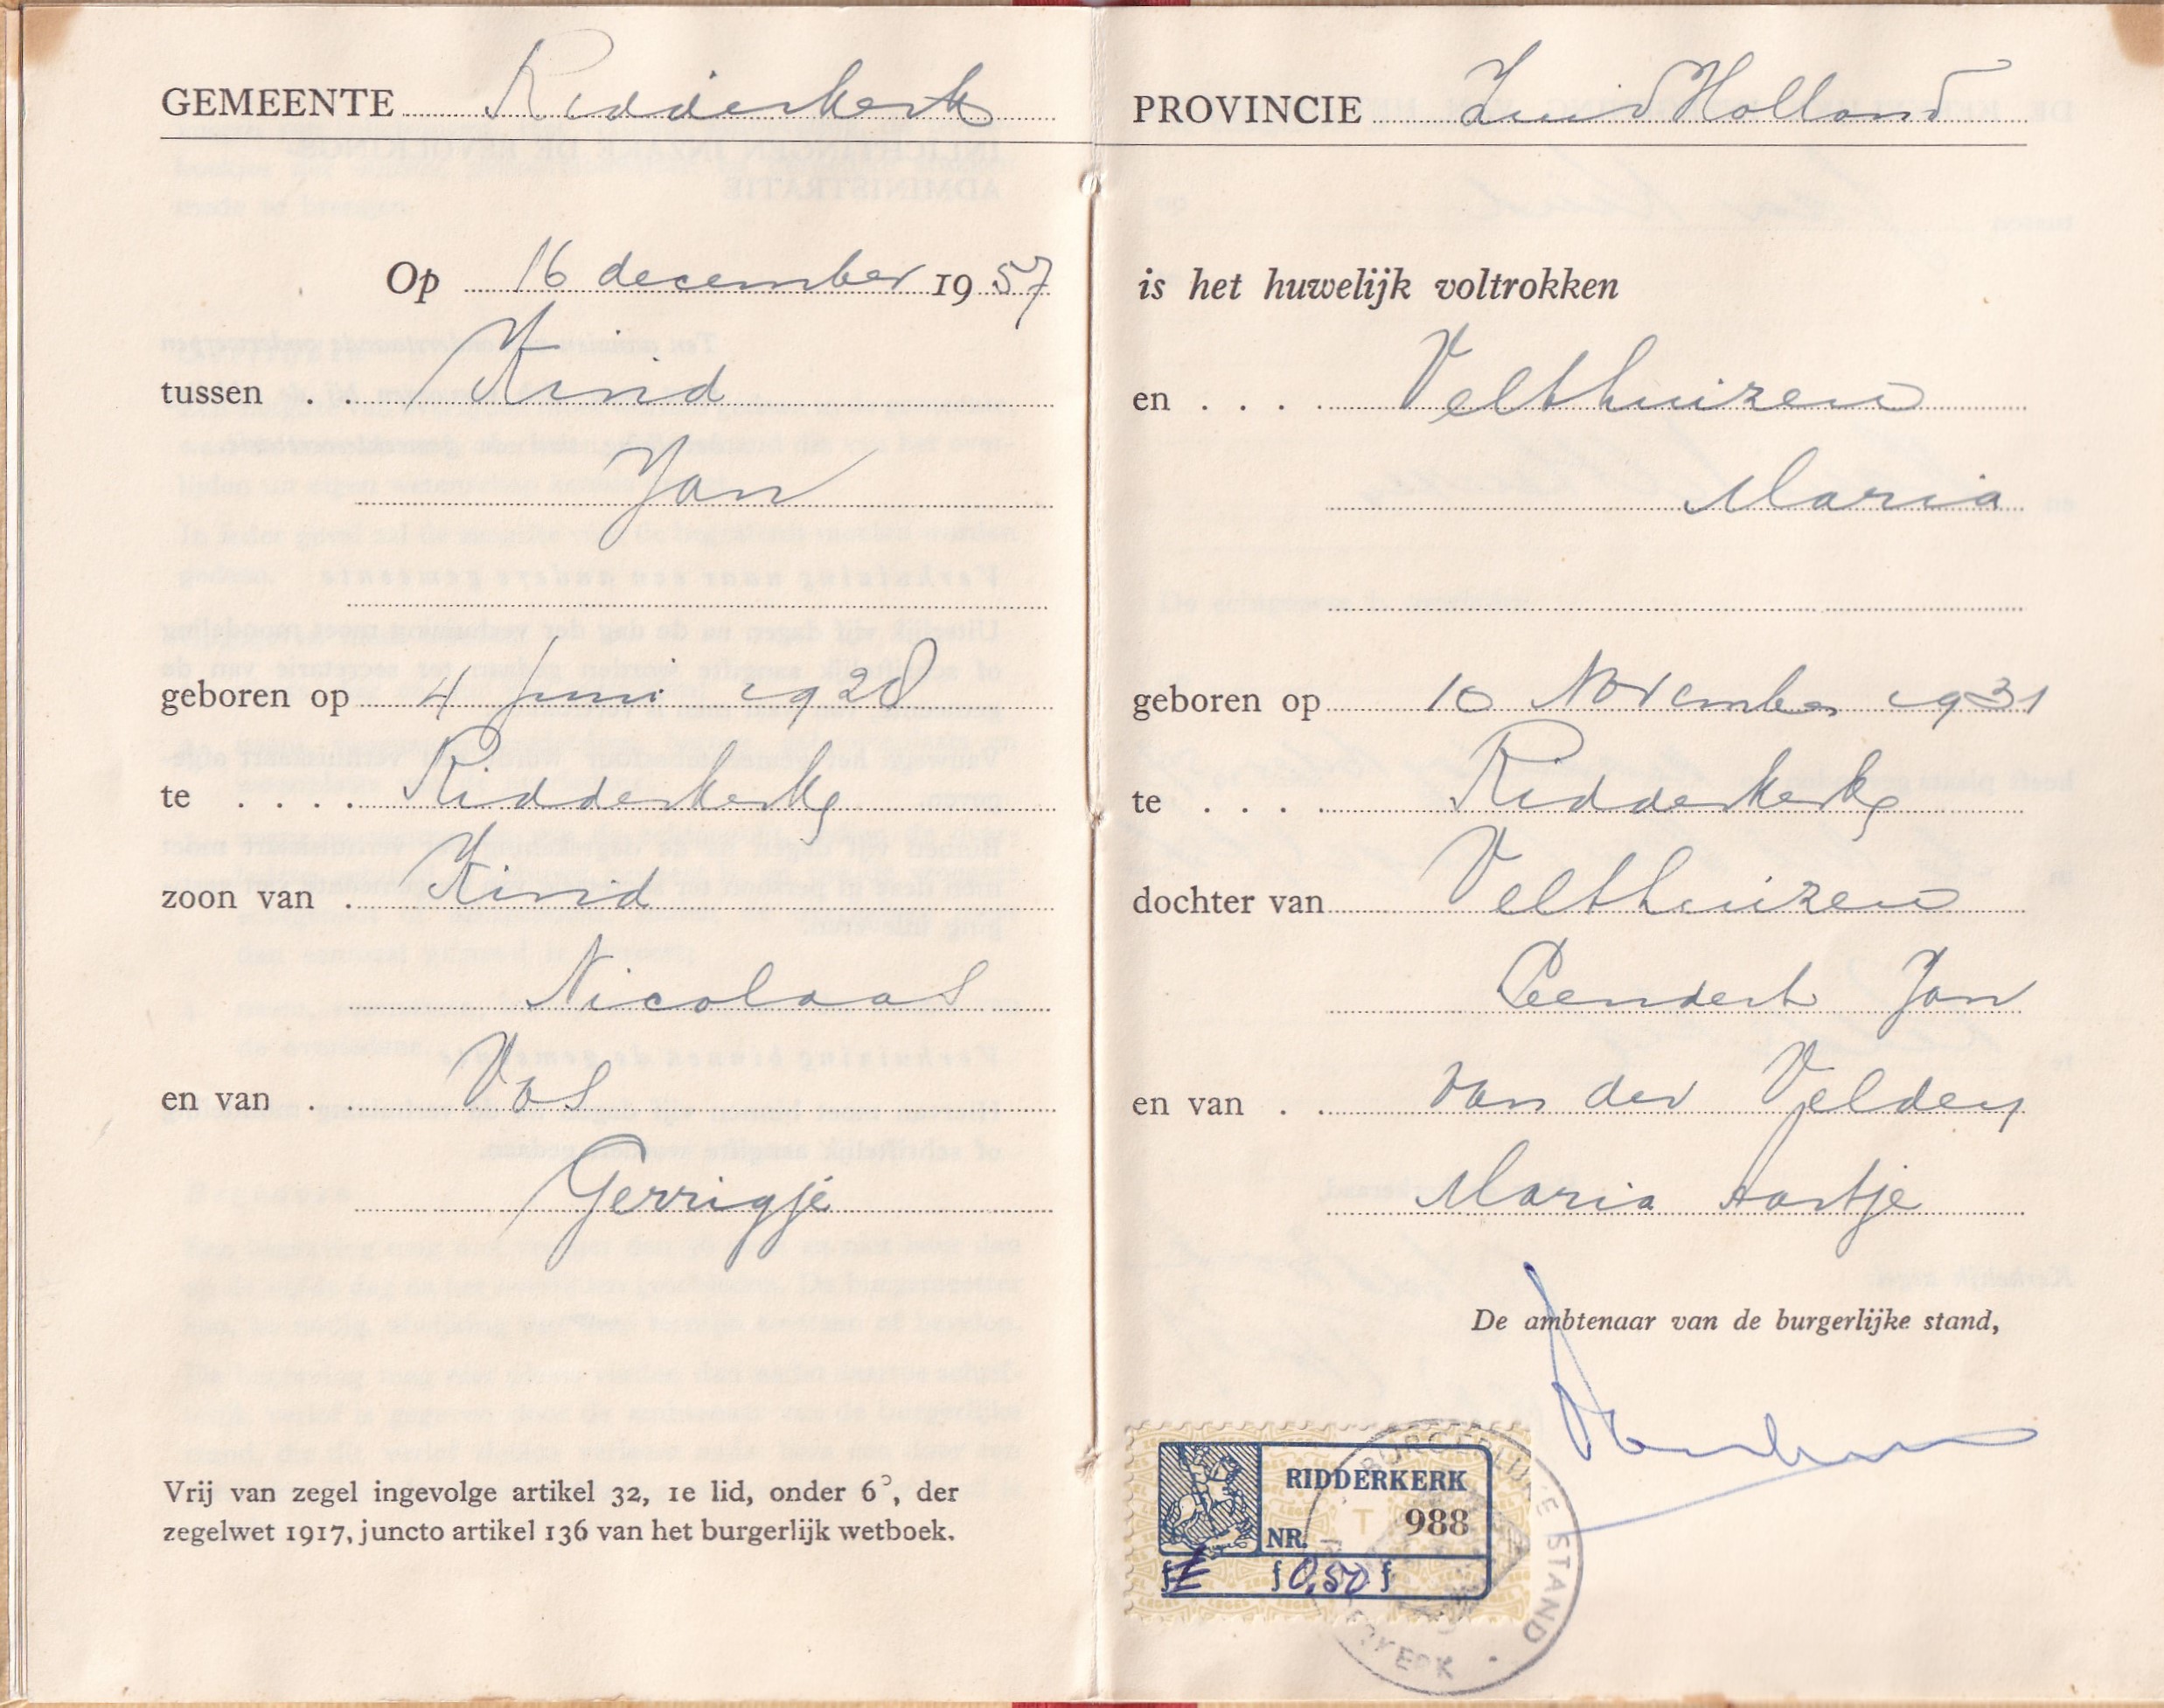 GEMEENTE Ridderkerk
Op 16 december 1957
tussen . . Kind
Jan
geboren op 4 Juni 1928
te . . . . Ridderkerk
zoon van . Kind
Nicolaas
en van . Vos
Gerrigje
Vrij van zegel ingevolge artikel 32, 1e lid, onder 6°, der
zegelwet 1917, juncto artikel 136 van het burgerlijk wetboek.
PROVINCIE Zuid Holland
is het huwelijk voltrokken
en . . . . Velthuizen
Maria
geboren op 10 November 1931
te . . . . Ridderkerk
dochter van Velthuizen
Leendert Jan
en van . . van der Velden
Maria Aartje
De ambtenaar van de burgerlijke stand,
RIDDERKERK
NR. 988
f 0,50 f
BURGERLIJKE STAND